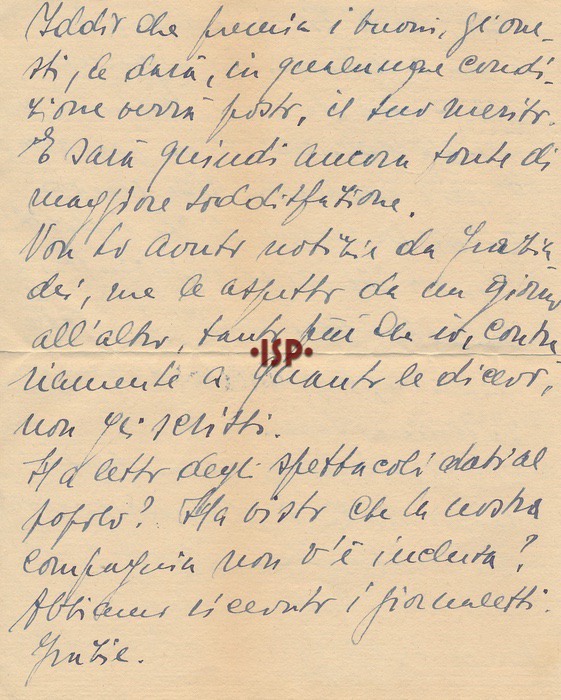 Iddio che premia i buoni, gl'one-
sti, le darà, in qualunque condi-
zione verrà posto, il suo merito.
E sarà quindi ancora fonte di
maggiore soddisfazione.
Non ho avuto notizia da Grazia
dei, me le aspetto da un giorno
all'altro, tanto più che io, contra
riamente a quanto le dicevo,
non gli scritti.
Ha letto degli spettacoli dati al
popolo? Ha visto che la nostra
compagnia non v'è inclusa?
Abbiamo ricevuto i giornaletti.
Grazie.
·ISP·